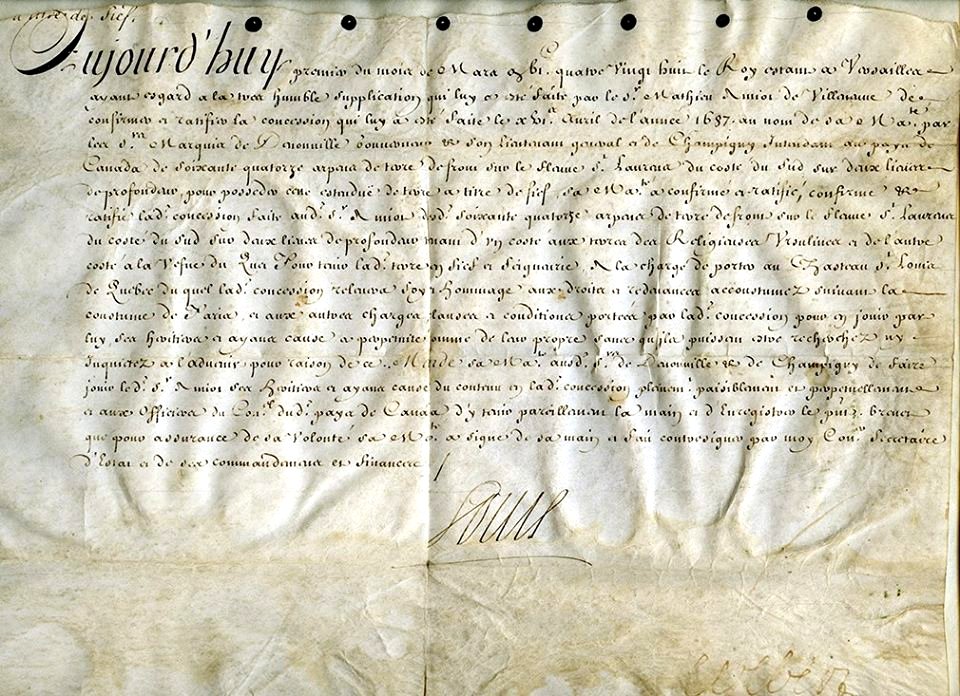 a titre de fief.
Aujourd'huy premier du mois de Mars gbi.c quatre vingt huit le Roy estant a Versailles
ayant esgard a la tres humble supplication qui luy a esté faite par le s.r Mathieu Amiot de Villeneuve de
confirmer et ratifier la concession qui luy a esté faite le Avril de l'année 1687. au nom de sa Ma.té par
les s.rs Marquis de Denonville Gouverneur & son Lieutenant general et de Champigny Intendant au pays de
Canada de soixante quatorze arpens de terre de front sur le fleuve S.t Laurens du costé du Sud sur deux lieües
de profondeur, pour posseder cette estendüe de terre a titre de fief, sa Ma.té a confirmé et ratifié, confirme &
ratifie lad.e concession faite aud.t s.r Amiot desd. soixante quatorze arpens de terre de front sur le fleuve S.t Laurens
du costé du Sud sur deux lieües de profondeur tenant d'un costé aux terres des Religieuses Vrsulines et de l'autre
costé à la Vefue du Quet Pour tenir lad.e terre en fief et seigneurie, A la charge de porter au Chasteau S.t Louis
de Quebec du quel lad.e concession relevera foy & hommage aux droits et redevances accoustumez suivant la
coustume de Paris, et aux autres charges clauses et conditions portées par lad.e concession pour en jouir par
luy, ses heritiers et ayans cause a perpetuité comme de leur propre sans qu'ils puissent estre recherchez ny
Inquietez a l'advenir pour raison de ce. Mande sa Ma.té ausd.s s.rs de Denonville & de Champigny de faire
jouir led.t s.r Amiot ses heritiers et ayans cause du contenu en lad.e concession plainem.t paisiblement et perpetuellement
et aux Officiers du Con.el dud.t pays de Canada d'y tenir pareillement la main et d'Enregistrer le pnt. brevet
que pour assurance de sa Volonté sa Ma.té a signé de sa main et fait contresigner par moy Con.er Secretaire
d'Estat et de ses commandemens et finances
Louis